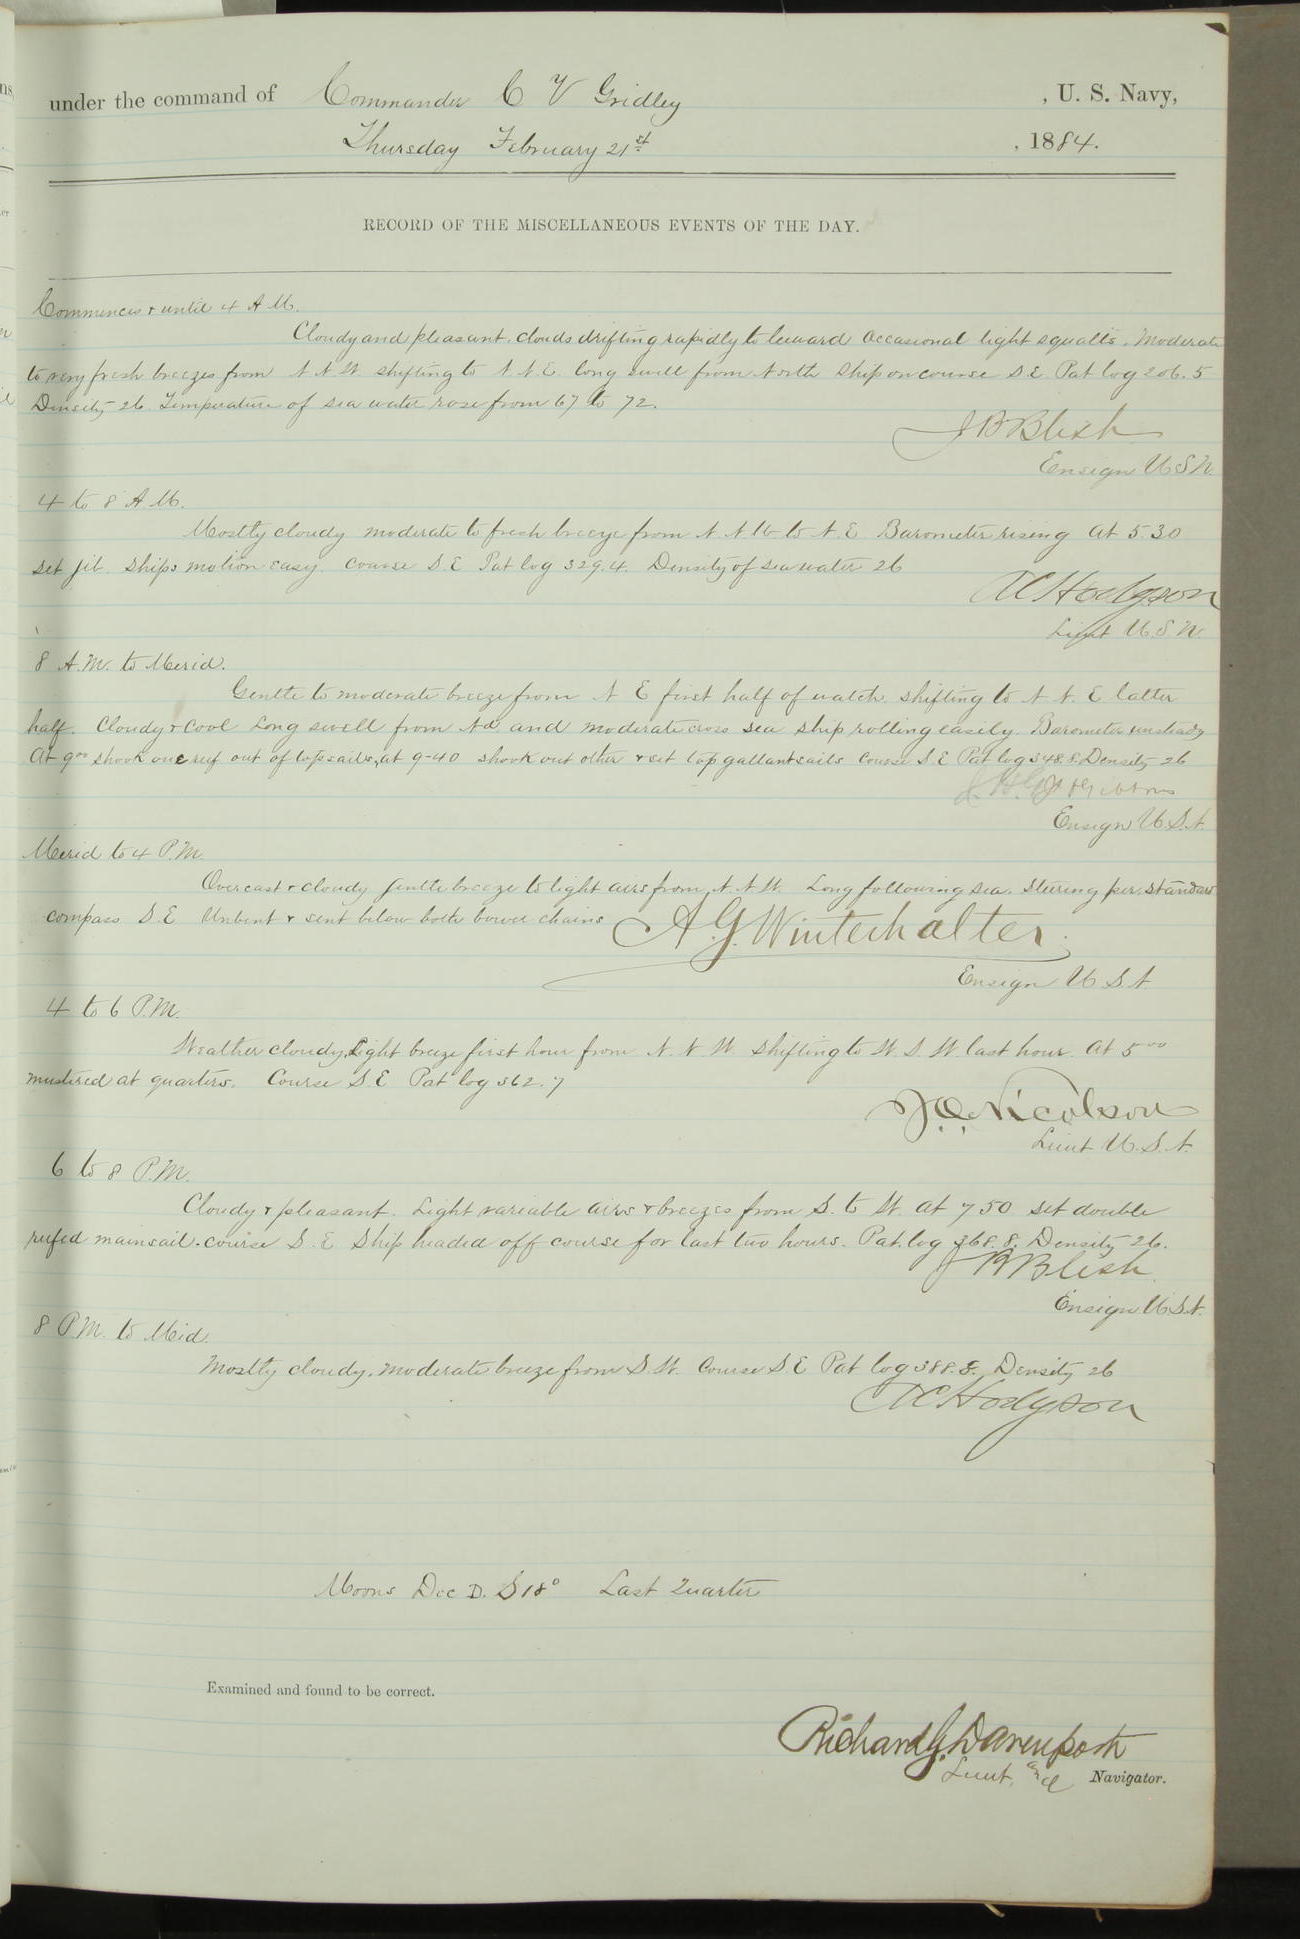 under the command of Commander C V Gridley , U. S. Navy,
Thursday February 21st , 1884.
RECORD OF THE MISCELLANEOUS EVENTS OF THE DAY.
Commences & until 4 A.M.
Cloudy and pleasant. clouds drifting rapidly to leeward Occasional light squalls. Moderate
to very fresh breezes from N.N.W. shifting to N.N.E. long swell from North Ship on course S.E. Pat log 206.5
Density 26 Temperature of sea water rose from 67 to 72.
J B Blish
Ensign U S N.
4 to 8 A.M.
Mostly cloudy moderate to fresh breeze from N.N.W to N.E Barometer rising at 5.30
set jib. Ships motion easy. course S.E Pat log 329.4. Density of sea water 26
A C Hodgson
Lieut U.S.N.
8 A.M. to Merid.
Gentle to moderate breeze from N E first half of watch. shifting to N.N.E latter
half. Cloudy & cool Long swell from Nd and moderate cross sea ship rolling easily. Barometer unsteady
At 9oo shook one reef out of topsails, at 9-40 shook out other & set top gallantsails course S.E Pat log 348.8 Density 26
Ensign U.S.N.
Merid to 4 P.M.
Overcast & cloudy gentle breeze to light airs from N.N.W. Long following sea. Steering per. standard
compass S.E Unbent & sent below both bower chains
A. G. Winterhalter.
Ensign U S N
4 to 6 P.M.
Weather cloudy, Light breeze first hour from N.N.W. shifting to W.S.W. last hour. At 5oo
mustered at quarters. Course S.E Pat log 362.7
J. O. Nicolson
Lieut U.S.N.
6 to 8 P.M.
Cloudy & pleasant. Light variable airs & breezes from S. to W. at 7 50 set double
reefed mainsail. course S.E Ship headed off course for last two hours. Pat. log 368.8. Density 26.
J B Blish
Ensign U.S.N.
8 P.M. to Mid.
Mostly cloudy, moderate breeze from S.W. Course S E Pat log 388.8. Density 26
A C Hodgson
Moons Dec D. S 18° Last Quarter
Examined and found to be correct.
Richard G. Davenport
Lieut, and Navigator.